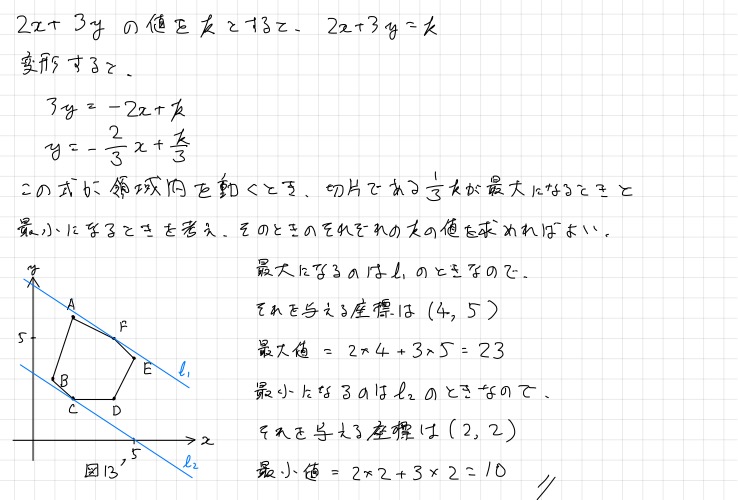 2x+3yの値をkとすると、2x+3y=k
変形すると、
3y=-2x+k
y=-2/3x+k/3
この式が領域内を動くとき、切片である1/3kが最大になるときと
最小になるときを考え、そのときのそれぞれのkの値を求めればよい。
最大になるのはl₁のときなので、
それを与える座標は(4,5)
最大値=2×4+3×5=23
最小になるのはl₂のときなので、
それを与える座標は(2,2)
最小値=2×2+3×2=10
y
A
F
5
E
l₁
B
C
D
x
5
図13'
l₂